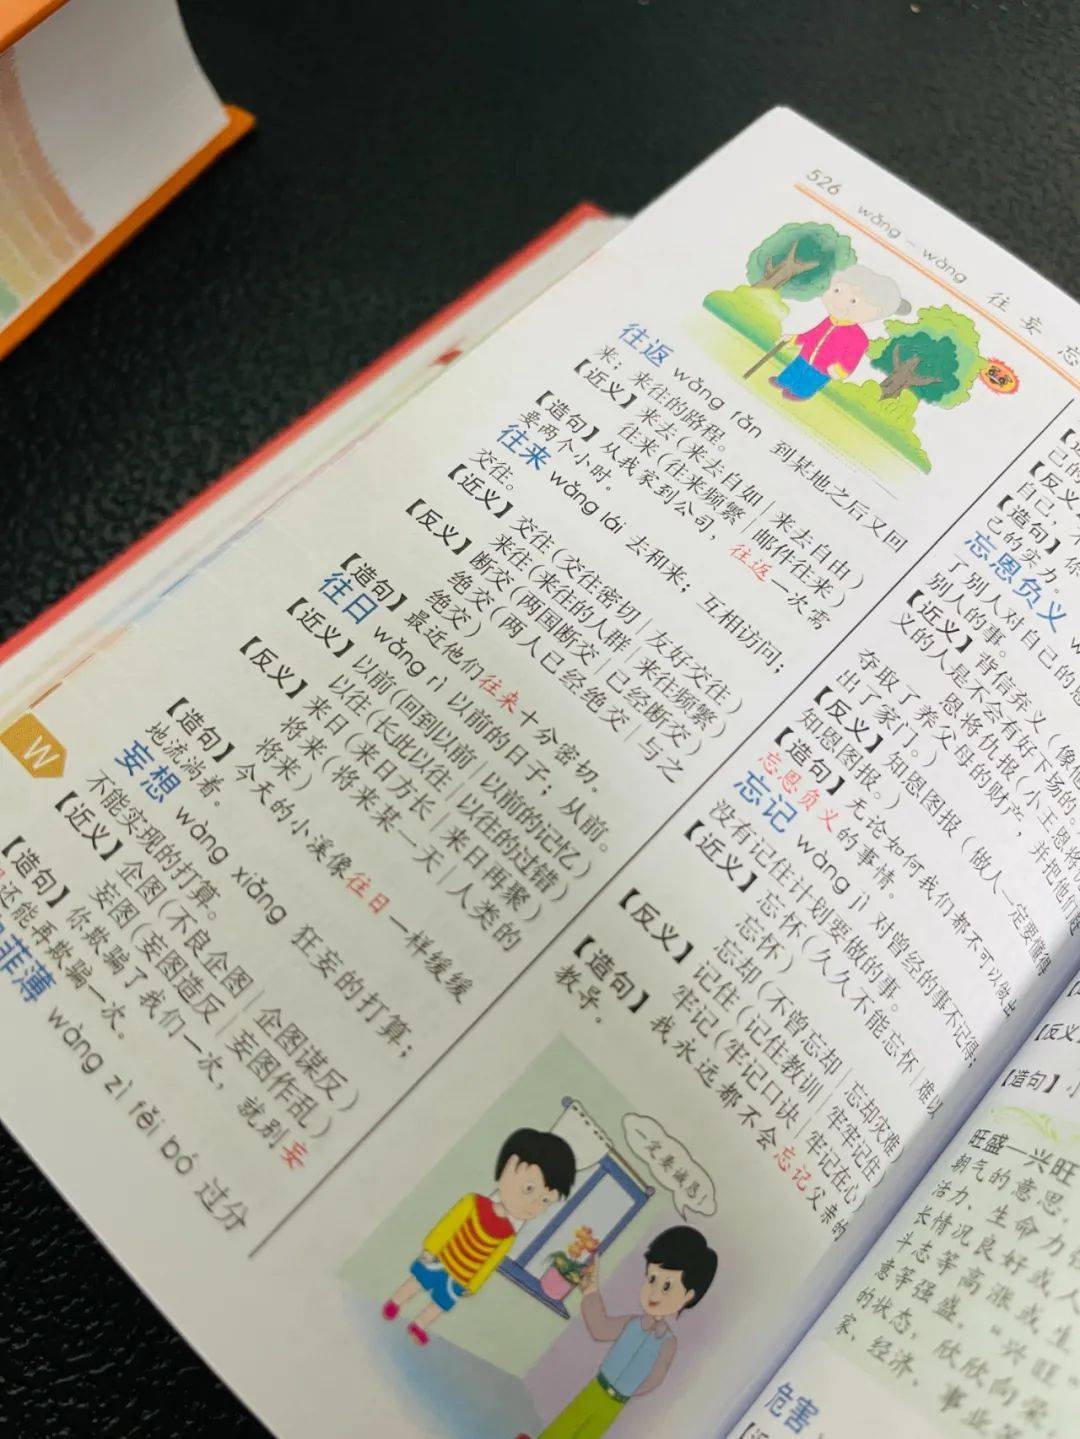 526 wǎng – wàng 往 妄 忘
往返 wǎng fǎn 到某地之后又回
来；来往的路程。
【近义】来去（来去自如｜来去自由）
往来（往来频繁｜邮件往来）
【造句】从我家到公司，往返一次需
要两个小时。
往来 wǎng lái 去和来；互相访问；
交往。
【近义】交往（交往密切｜友好交往）
来往（来往的人群｜来往频繁）
【反义】断交（两国断交｜已经断交）
绝交（两人已经绝交｜与之
绝交）
【造句】最近他们往来十分密切。
往日 wǎng rì 以前的日子；从前。
【近义】以前（回到以前｜以前的记忆）
以往（长此以往｜以往的过错）
【反义】来日（来日方长｜来日再聚）
将来（将来某一天｜人类的
将来）
【造句】今天的小溪像往日一样缓缓
地流淌着。
妄想 wàng xiǎng 狂妄的打算；
不能实现的打算。
【近义】企图（不良企图｜企图谋反）
妄图（妄图造反｜妄图作乱）
【造句】你欺骗了我们一次，就别妄
还能再欺骗一次。
菲薄 wàng zì fěi bó 过分
W
【反义
自己，
【造句】你
己的实力。
忘恩负义
了别人对自己的恩
别人的事。
【近义】背信弃义（像他
义的人是不会有好下场的。
恩将仇报（小王恩将仇
夺取了养父母的财产，并把他们赶
出了家门。）
【反义】知恩图报（做人一定要懂得
知恩图报。）
【造句】无论如何我们都不可以做出
忘恩负义的事情。
忘记 wàng jì 对曾经的事不记得；
没有记住计划要做的事。
【近义】忘怀（久久不能忘怀｜难以
忘怀）
忘却（不曾忘却｜忘却灾难）
【反义】记住（记住教训｜牢牢记住）
牢记（牢记口诀｜牢记在心）
【造句】我永远都不会忘记父亲的
教导。
一定要诚恳！
【反义
【造句】小
旺盛—兴旺
朝气的意思，
活力、生命力
长情况良好或人
斗志等高涨或生
意等强盛。“兴旺”
的状态，欣欣向荣，
家、经济、事业等
危害